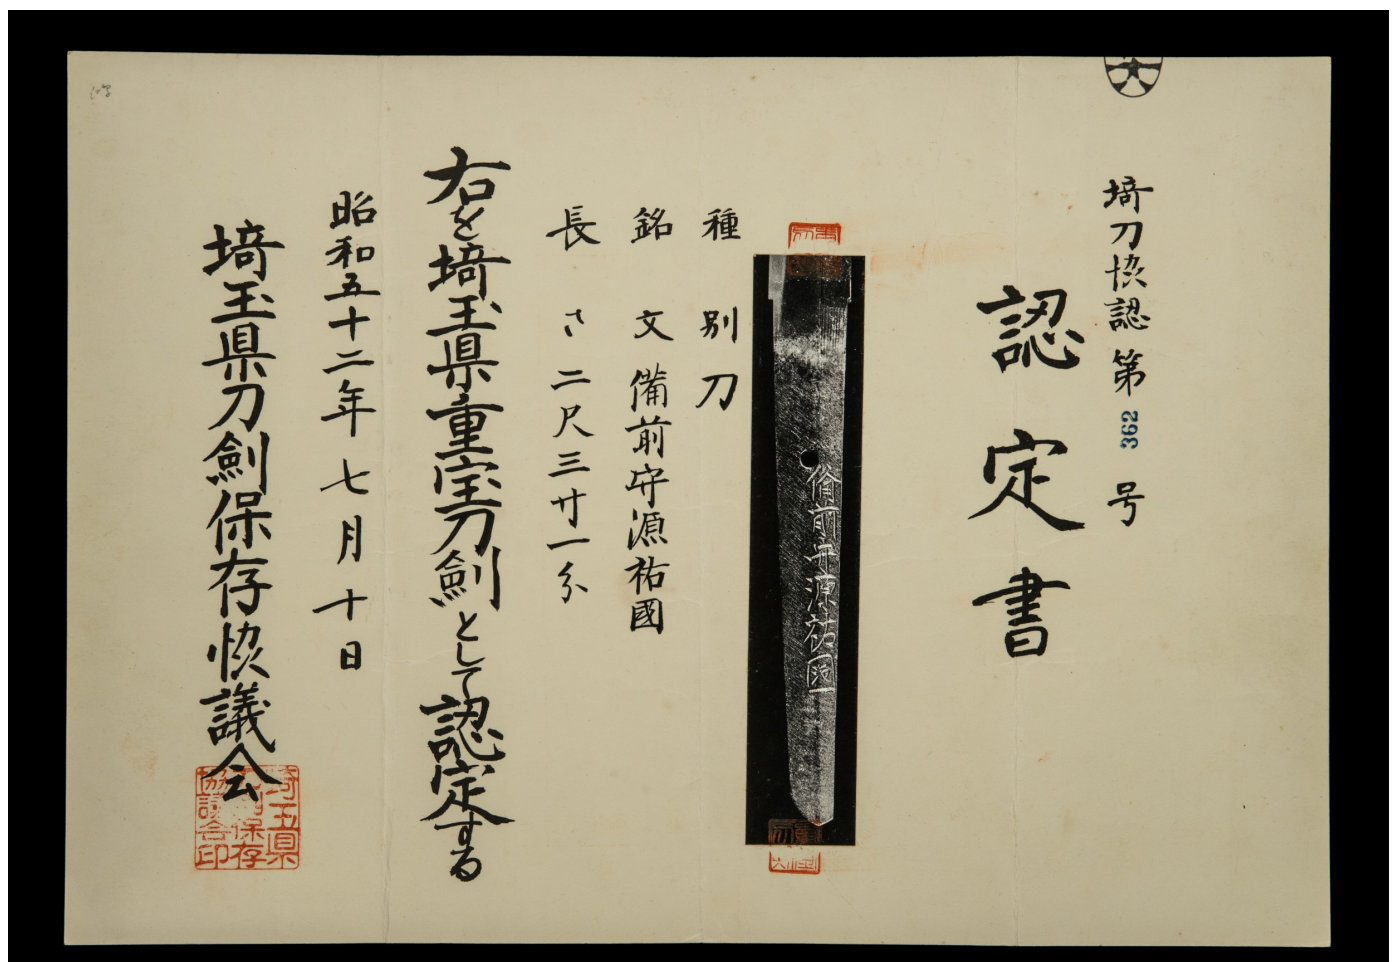 埼刀協認第362号
認定書
備前守源祐国
種別 刀
銘文 備前守源祐國
長さ 二尺三寸一分
右を埼玉県重宝刀劍として認定する
昭和五十二年七月十日
埼玉県刀劍保存協議会
埼玉県
保存
協議会印